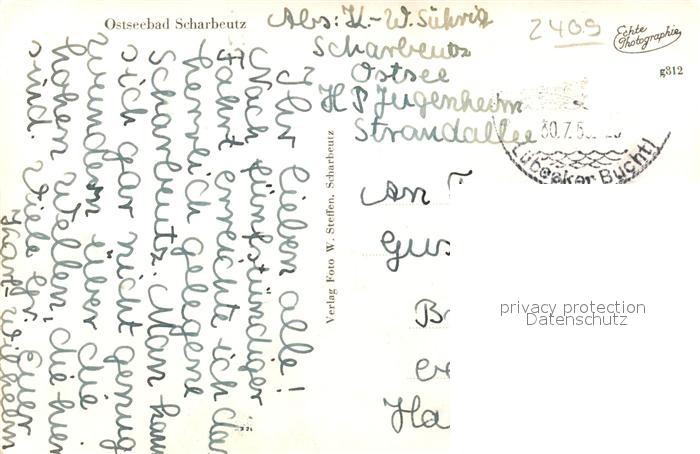 Ostseebad Scharbeutz
Abs: K.-W. Sührig
Scharbeutz
Ostsee
H P Jugenheim
Strandallee
2409
Echte
Photographie
g812
30.7.5
Lübecker Bucht
Ihr lieben alle!
Nach fünfstündiger
Fahrt erreichte ich das
herrlich gelegene
Scharbeutz. Man kann
sich gar nicht genug
wundern über die
hohen Wellen, die hier
sind. Viele Gr. Euer
Karl-Wilhelm
Verlag Foto W. Steffen, Scharbeutz
An
Gus
B
Ha
privacy protection
Datenschutz